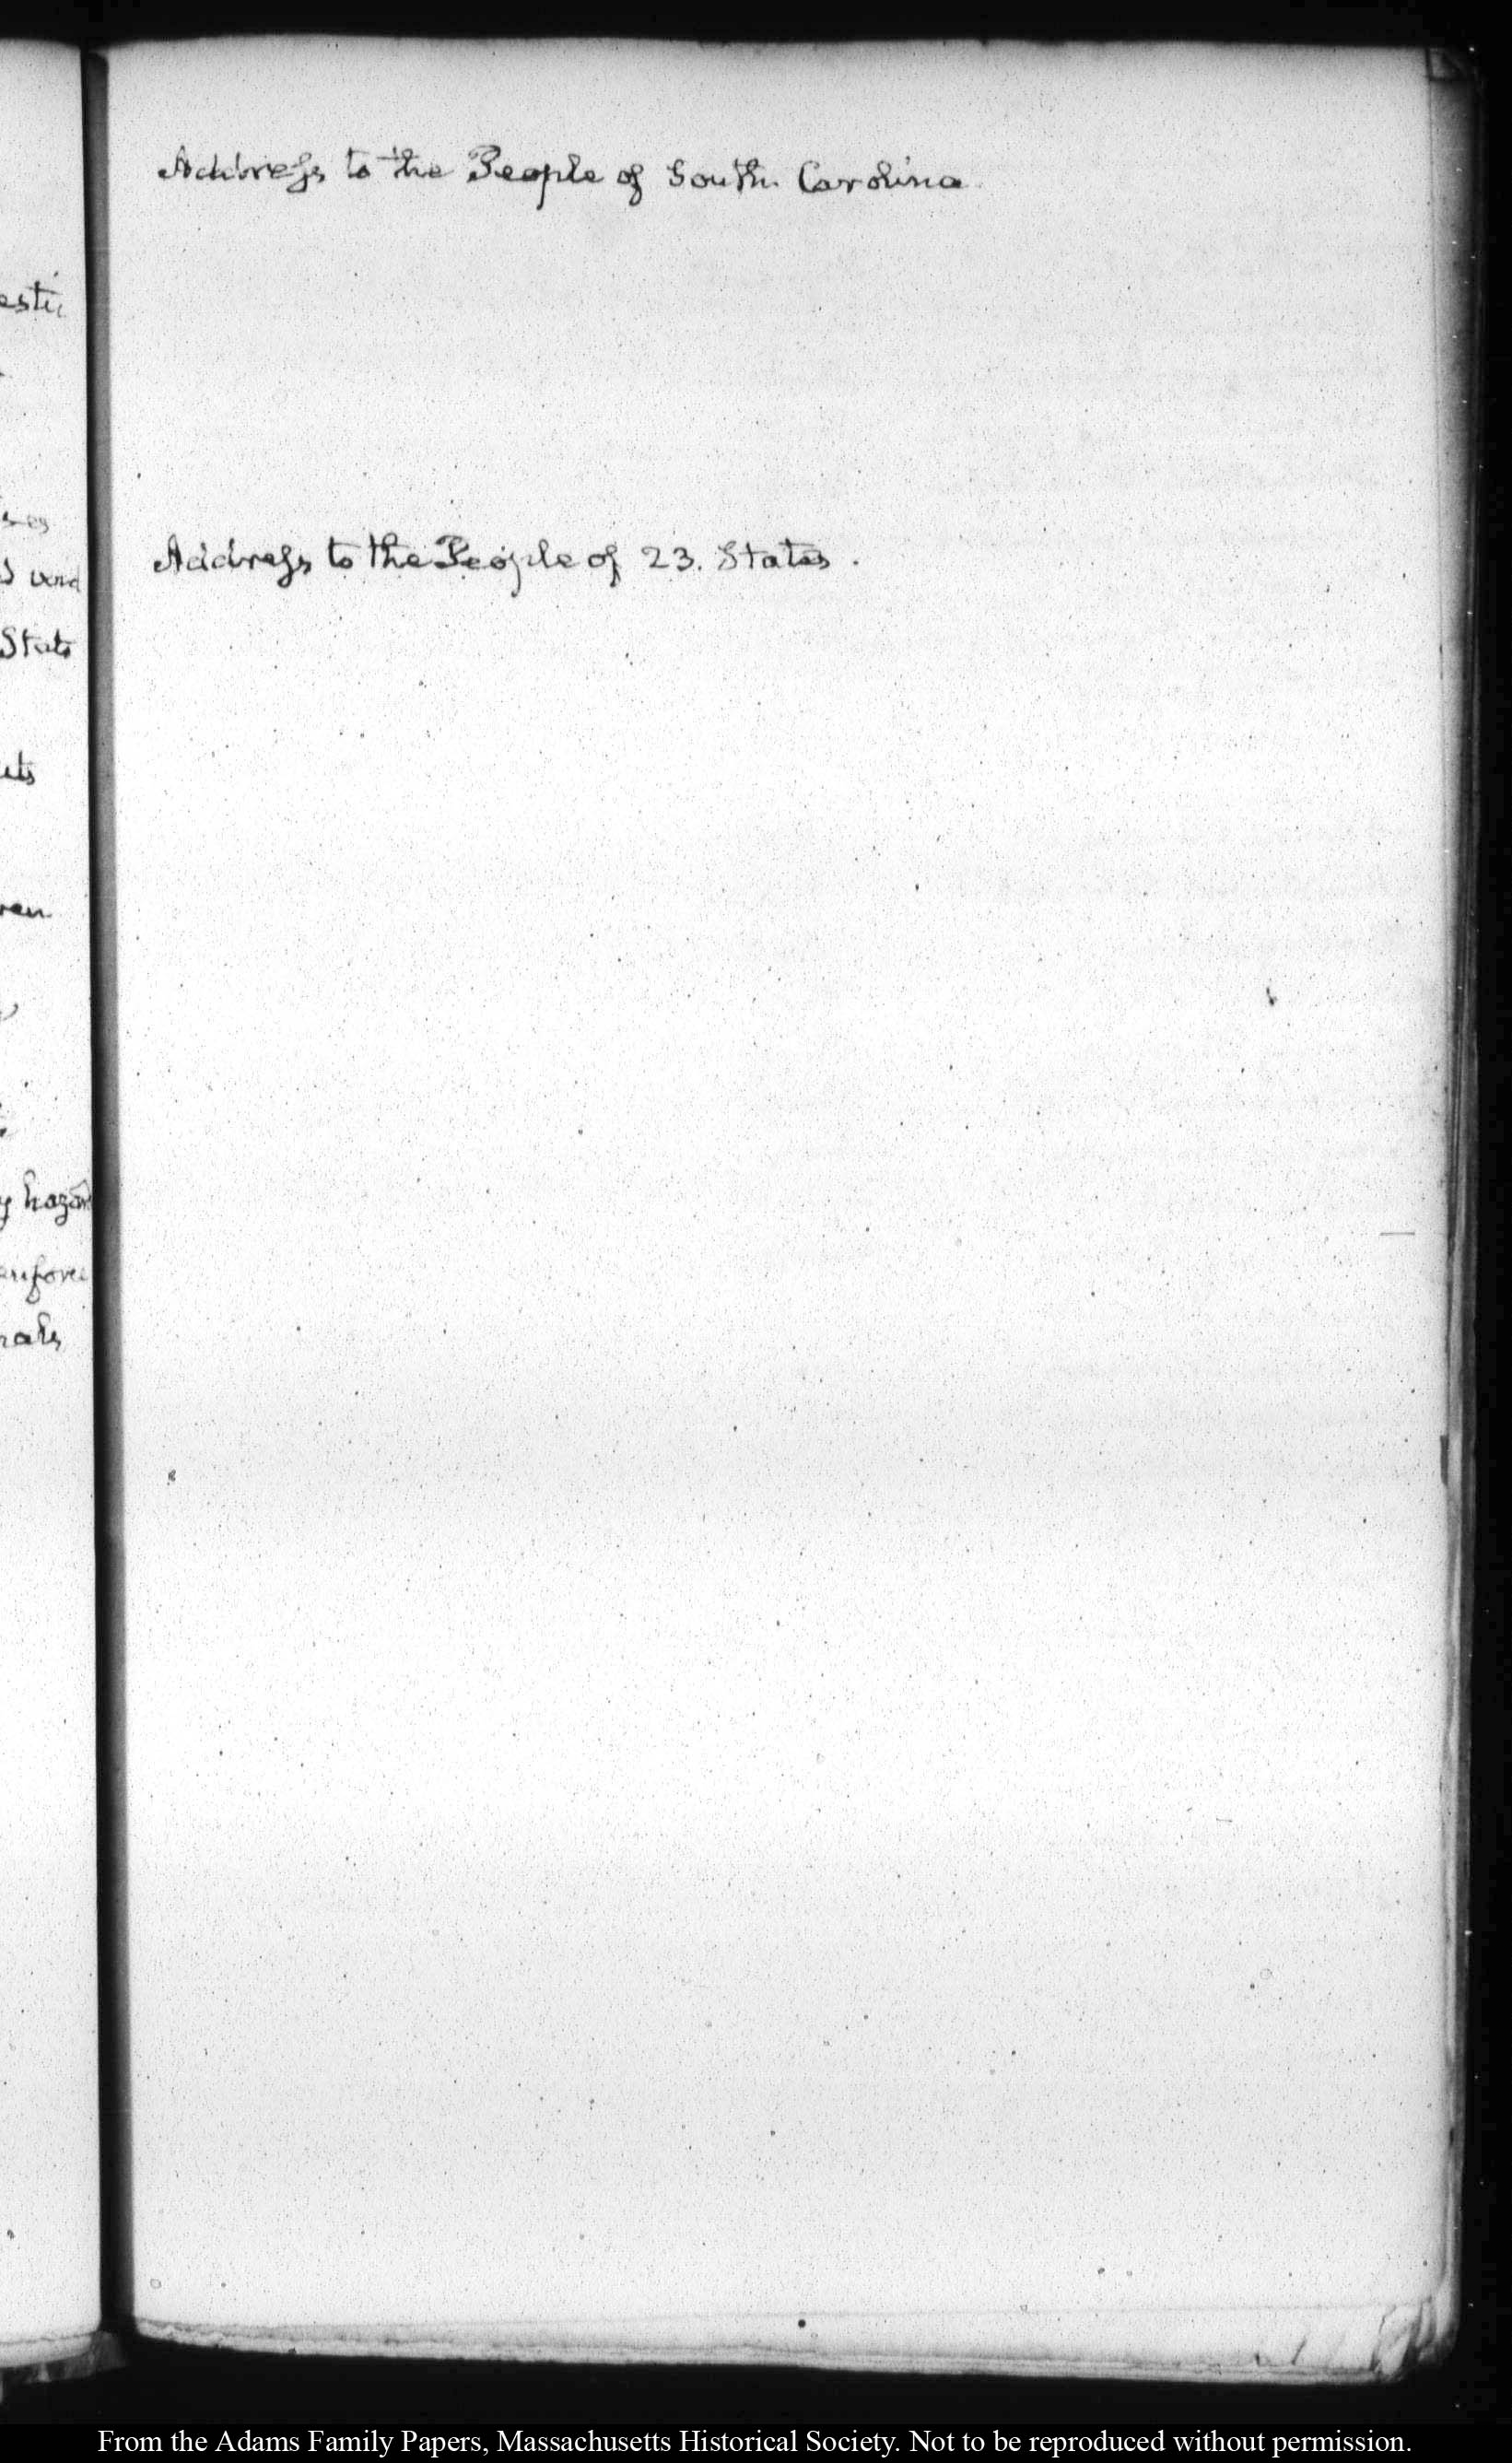 Address to the People of South Carolina
Address to the People of 23. States.
State
hazar
enforce
From the Adams Family Papers, Massachusetts Historical Society. Not to be reproduced without permission.